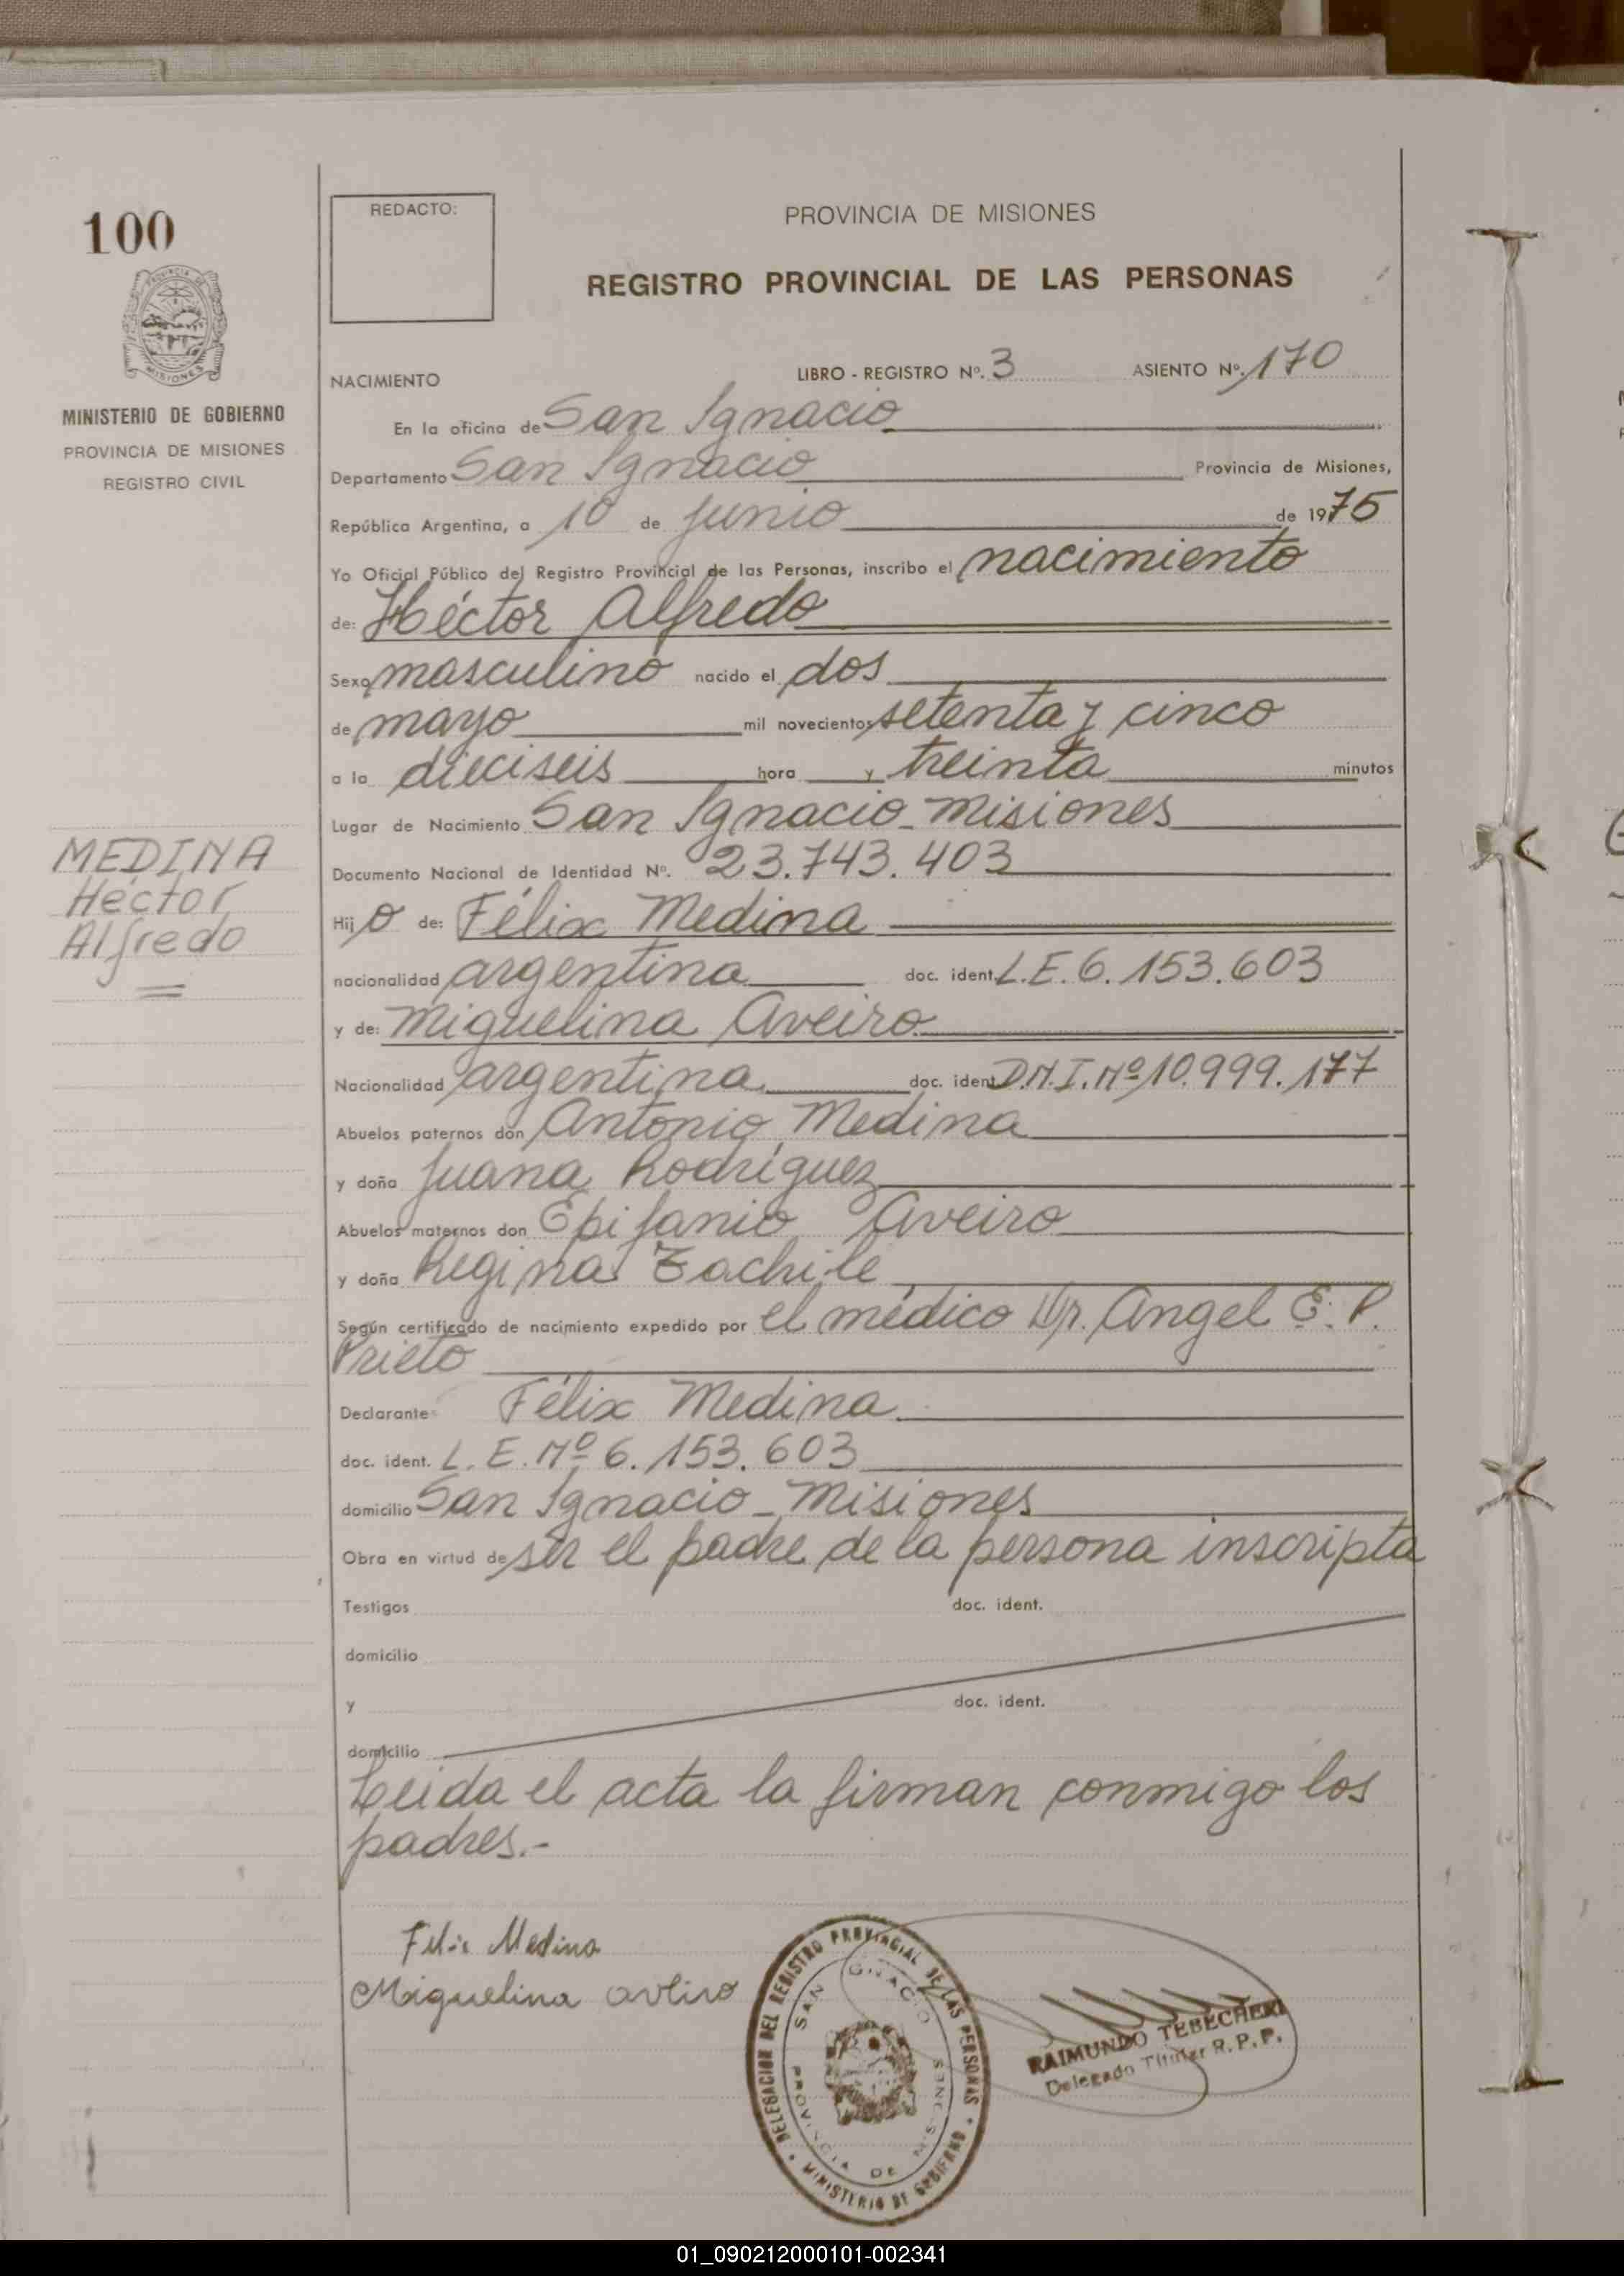 100
REDACTO:
PROVINCIA DE MISIONES
REGISTRO PROVINCIAL DE LAS PERSONAS
MINISTERIO DE GOBIERNO
PROVINCIA DE MISIONES
REGISTRO CIVIL
NACIMIENTO LIBRO - REGISTRO Nº. 3 ASIENTO Nº. 170
En la oficina de San Ignacio
Departamento San Ignacio Provincia de Misiones,
República Argentina, a 10 de junio de 1975
Yo Oficial Público del Registro Provincial de las Personas, inscribo el nacimiento
de: Héctor Alfredo
Sexo masculino nacido el dos
de mayo mil novecientos setenta y cinco
a la dieciseis hora y treinta minutos
Lugar de Nacimiento San Ignacio - Misiones
MEDINA
Héctor
Alfredo
Documento Nacional de Identidad Nº. 23.743.403
Hijo de: Félix Medina
nacionalidad argentina doc. ident. L.E. 6.153.603
y de: Miguelina Aveiro
Nacionalidad argentina doc. ident. D.N.I. Nº 10.999.177
Abuelos paternos don Antonio Medina
y doña Juana Rodríguez
Abuelos maternos don Epifanio Aveiro
y doña Regina
Según certificado de nacimiento expedido por el médico Dr. Angel E. P.
Prieto
Declarante Félix Medina
doc. ident. L.E. Nº 6.153.603
domicilio San Ignacio - Misiones
Obra en virtud de ser el padre de la persona inscripta
Testigos doc. ident.
domicilio
y doc. ident.
domicilio
Leida el acta la firman conmigo los
padres.-
Felix Medina
Miguelina Aveiro
DELEGACION DEL REGISTRO PROVINCIAL DE LAS PERSONAS
SAN IGNACIO
PROVINCIA DE MISIONES
MINISTERIO DE GOBIERNO
RAIMUNDO TEBECHERI
Delegado Titular R.P.P.
01_090212000101-002341